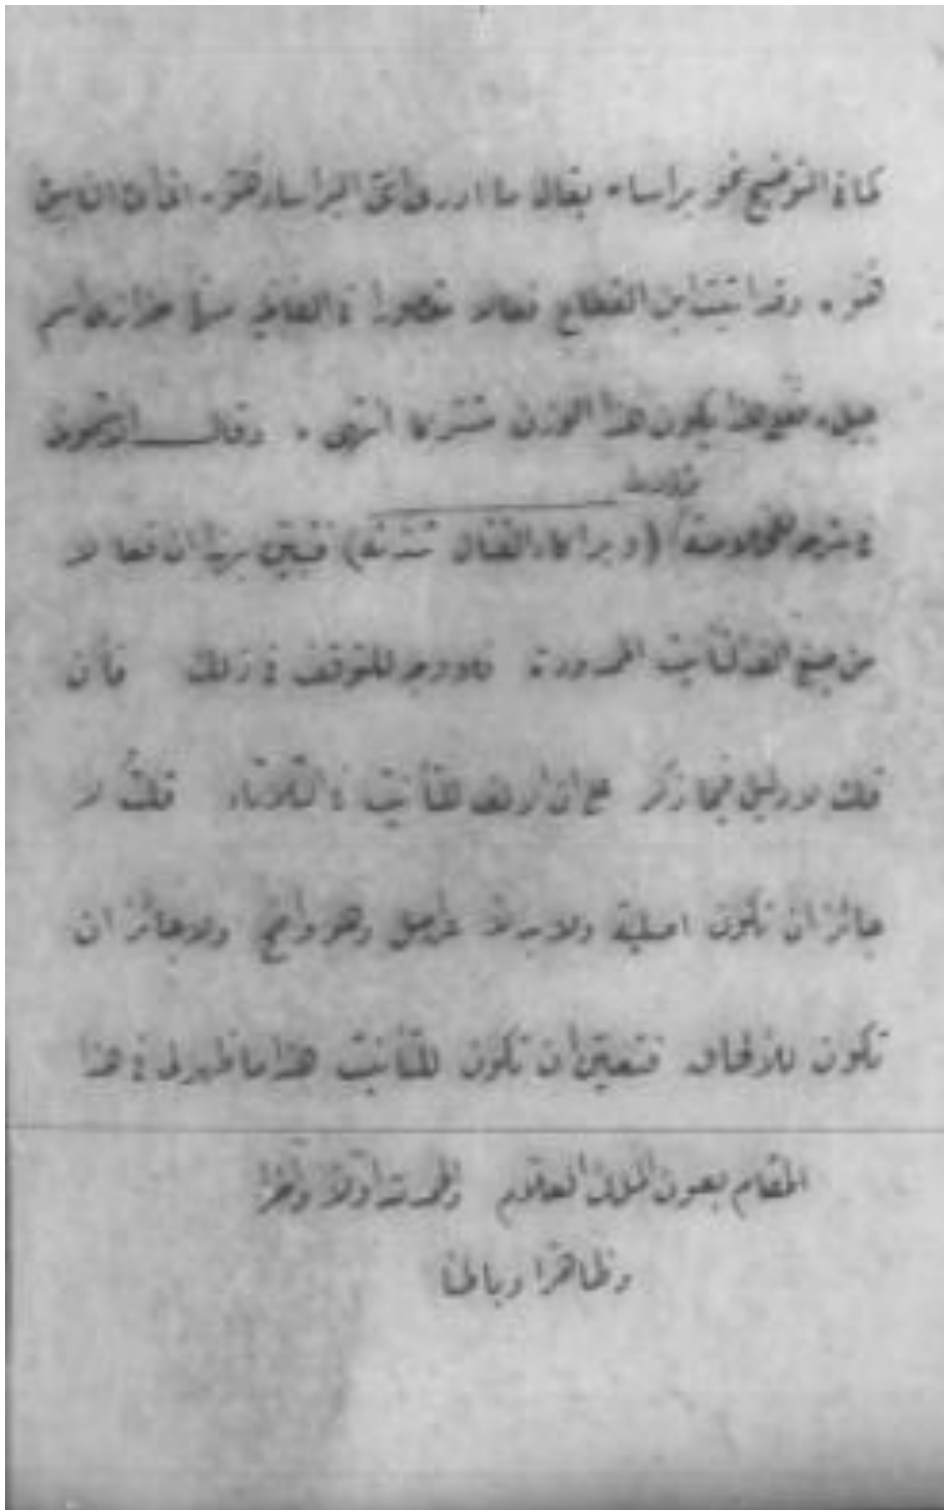 كما في التوضيح نحو براساء يقال ما ادرى أي البراساء هو. اي أي الناس
هو. وقد اثبت ابن القطاع فعالا مقصورا في الفاظ منها خزازى اسم
جبل، فعلى هذا يكون هذا الوزن مشتركا انتهى. وقال الاشموني
في شرح الخلاصة (وبراكاء القتال شدته) فتبين بهذا ان فعالا
من صيغ الف التأنيث الممدودة فلا وجه للتوقف في ذلك فأن
قلت لا دليل فيما ذكر على ان الف للتأنيث في الثلاثاء قلت لا
جائز ان تكون اصلية ولا بدلا عن اصل وهو واضح ولا جائز ان
تكون للالحاق فتعين أن تكون للتأنيث هذا ما ظهر لي في هذا
المقام بعون الملك العلام والحمد لله أولا وآخرا
وظاهرا وباطنا